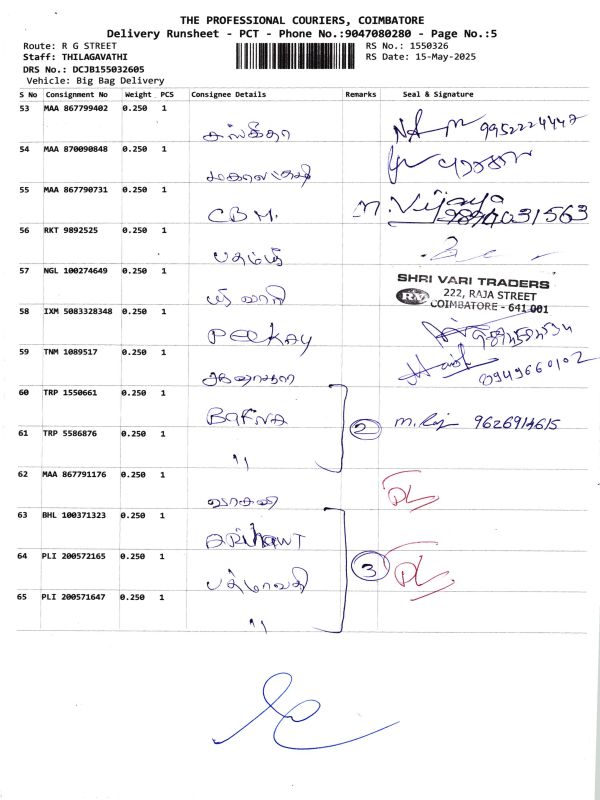 THE PROFESSIONAL COURIERS, COIMBATORE
Delivery Runsheet - PCT - Phone No.:9047080280 - Page No.:5
Route: R G STREET
RS No.: 1550326
Staff: THILAGAVATHI
RS Date: 15-May-2025
DRS No.: DCJB155032605
Vehicle: Big Bag Delivery
S No Consignment No Weight PCS Consignee Details Remarks Seal & Signature
53 MAA 867799402 0.250 1
9952224442
54 MAA 870090848 0.250 1
55 MAA 867790731 0.250 1
CBM. M. Vijaya
56 RKT 9892525 0.250 1
57 NGL 100274649 0.250 1
SHRI VARI TRADERS
RV 222, RAJA STREET
COIMBATORE - 641 001
ஸ்ரீ வாரி
58 IXM 5083328348 0.250 1
PEEKAY
59 TNM 1089517 0.250 1
60 TRP 1550661 0.250 1
BAFNA 2 9626914615
61 TRP 5586876 0.250 1
"
62 MAA 867791176 0.250 1
63 BHL 100371323 0.250 1
64 PLI 200572165 0.250 1
பத்மாவதி 3
65 PLI 200571647 0.250 1
"